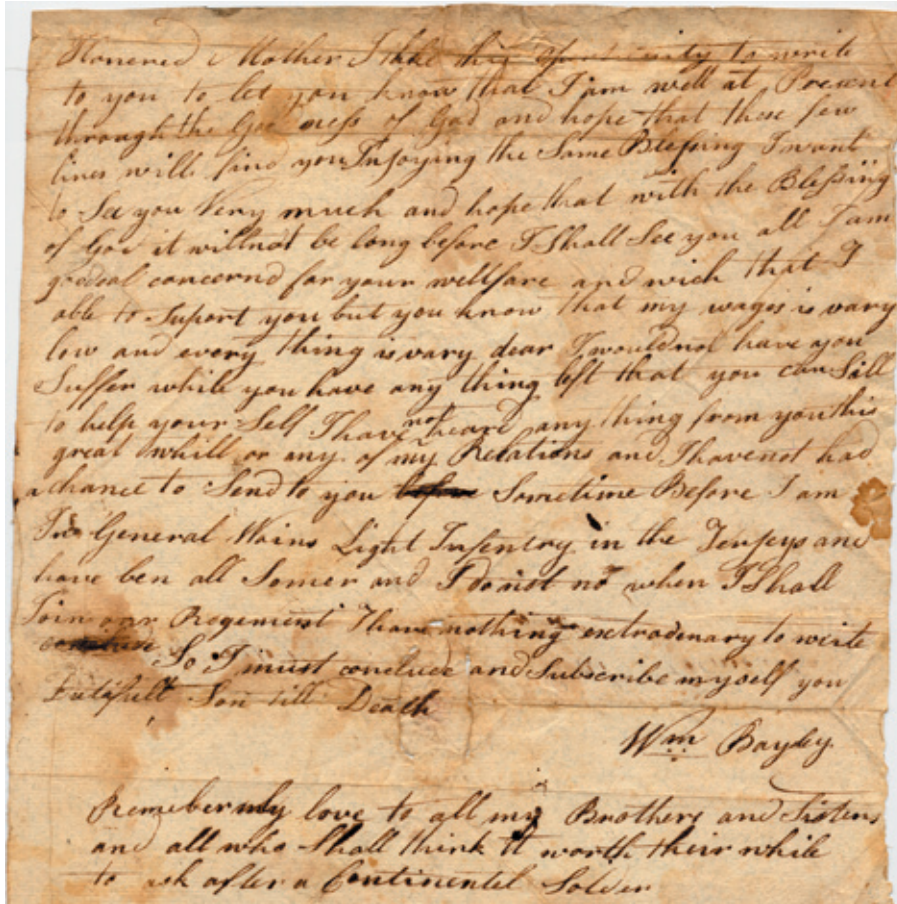 Honered Mother I take this opportunity to write
to you to let you know that I am well at Present
through the Goodness of God and hope that these few
lines will find you Injoying the Same Blessing I want
to See you Very much and hope that with the Blessing
of God it will not be long before I Shall See you all I am
gradeal concernd for your wellfare and wich that I
able to Suport you but you know that my wages is vary
low and every thing is vary dear I would not have you
Suffer while you have any thing left that you can Sill
to help your Self I have not heard any thing from you this
great whill or any of my Relations and I have not had
a chance to Send to you Sometime Before I am
In General Wains Light Infentry in the Jerseys and
have ben all Somer and I do not no when I Shall
Join our Regement I have nothing extradenary to write
So I must conclude and Subscribe myself you
Son till Death
Wm Bayley
Remeber my love to all my Brothers and Sisters
and all who Shall think it worth their while
to ask after a Continentel Solder